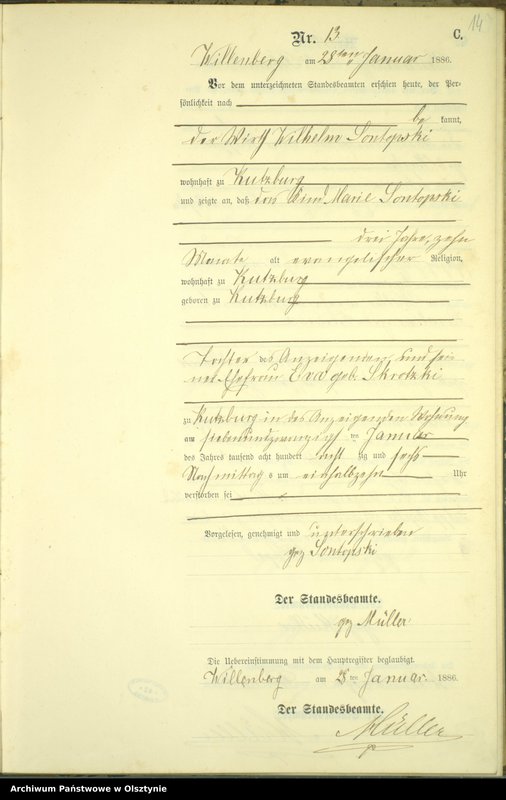 14
Nr. 13 C.
Willenberg am 28ten Januar 1886.
Vor dem unterzeichneten Standesbeamten erschien heute, der Per-
sönlichkeit nach
be kannt,
der Wirth Wilhelm Sontopski
wohnhaft zu Kutzburg
und zeigte an, daß das Kind Marie Sontopski
drei Jahre, zehn
Monate alt evangelischer Religion,
wohnhaft zu Kutzburg
geboren zu Kutzburg
Tochter des Anzeigenden und sei-
ner Ehefrau Eva geb. Skrotzki
zu Kutzburg in des Anzeigenden Wohnung
am siebenundzwanzigsten Januar
des Jahres tausend acht hundert acht zig und sechs
Nachmittags um einhalbzehn Uhr
verstorben sei
Vorgelesen, genehmigt und unterschrieben
gez Sontopski
Der Standesbeamte.
gez Müller
Die Uebereinstimmung mit dem Hauptregister beglaubigt.
Willenberg am 28 ten Januar 1886.
Der Standesbeamte.
Müller
Archiwum Państwowe w Olsztynie